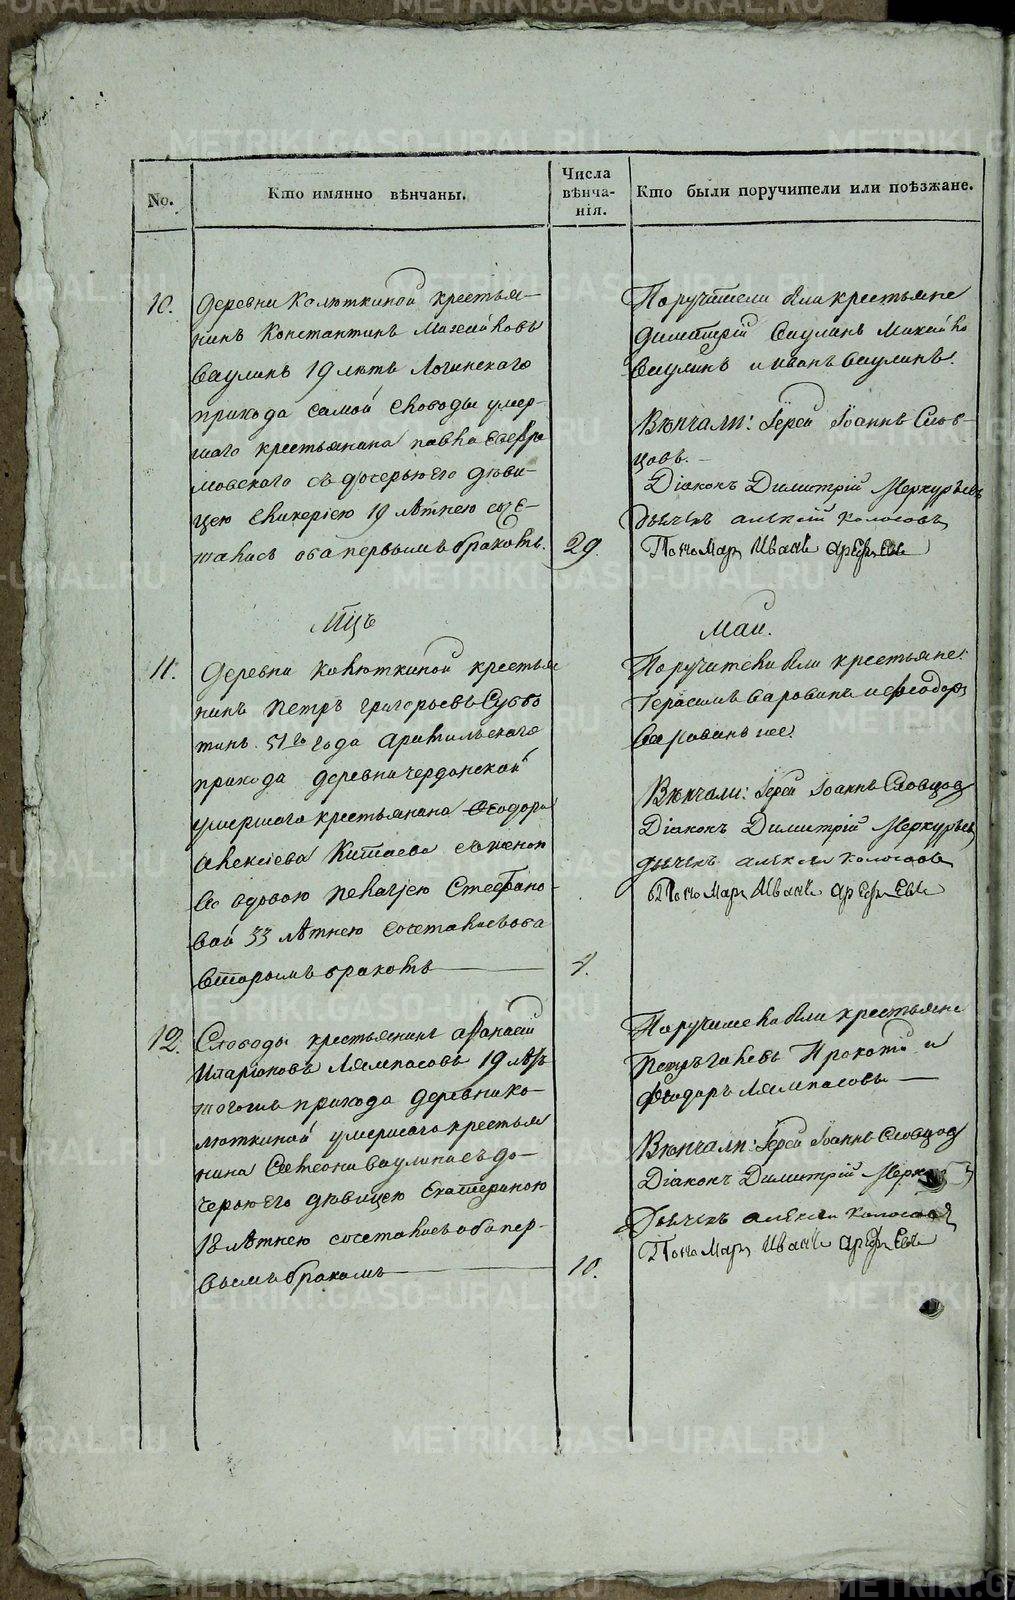 No.
Кто имянно вѣнчаны.
Числа
вѣнча-
нія.
Кто были поручители или поѣзжане.
10.
деревни Колюткиной крестья-
нинъ Константинъ
Ваулинъ 19 лѣтъ Логинскаго
прихода самой слободы умер-
шаго крестьянина павла
съ дочерью его дѣви-
цею Гликеріею 19 лѣтнею соче-
тались оба первымъ бракомъ.
29.
Поручители были крестьяне
димитрій Ваулинъ
Ваулинъ и иванъ Ваулинъ.
Вѣнчали: Іерей Іоаннъ Слов-
цовъ.
Діаконъ Димитрій Меркурьевъ
дьячекъ алексей колосовъ
Пономарь Иванъ арефьевъ
Мцъ
Маи.
11.
деревни колюткиной крестья
нинъ петръ григорьевъ Суббо
тинъ 51го года арамильскаго
прихода деревни чердонской
умершаго крестьянина Феодора
алексіева Китаева съ женою
его вдовою пелагіею Стефано-
вой 33 лѣтнею сочетались оба
вторымъ бракомъ
4.
Поручители были крестьяне
Герасимъ и феодоръ
Вѣнчали: Іерей Іоаннъ Словцовъ
Діаконъ Димитрій Меркурьевъ
дьячекъ алексеи колосовъ
Пономарь Иванъ арефьевъ
12.
Слободы крестьянинъ афанасій
Иларіоновъ Лямпасовъ 19 лѣтъ
тогожъ прихода деревни ко-
люткиной умершаго крестья
нина Симеона ваулина съ до-
черью его дѣвицею Екатериною
18 лѣтнею сочетались оба пер-
вымъ бракомъ
10.
Поручители были крестьяне
петръ Прокопій и
Феодоръ Лямпасовы
Вѣнчали: Іерей Іоаннъ Словцовъ
Діаконъ Димитрій
Дьячекъ алексеи колосовъ
Пономарь Иванъ арефьевъ
METRIKI.GASO-URAL.RU